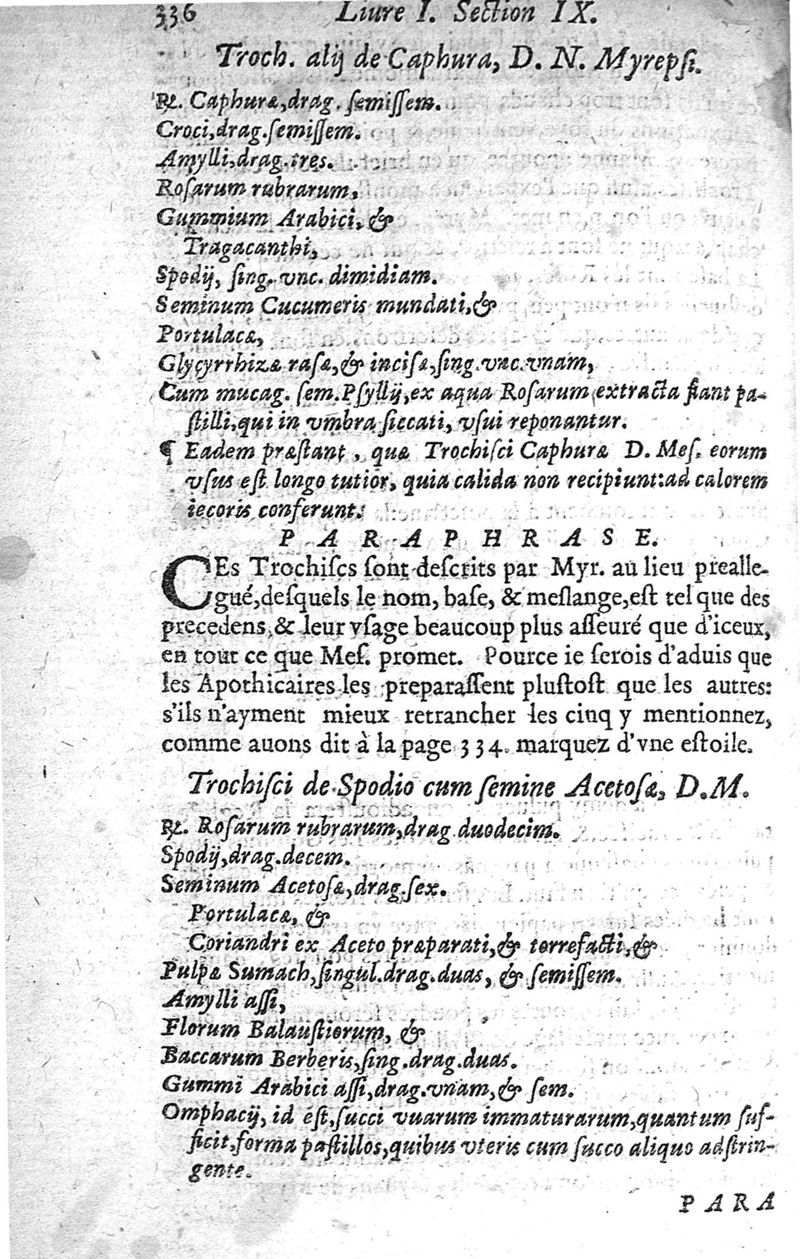 336 Liure I. Section IX.
Troch. alij de Caphura, D. N. Myrepſi.
℞. Caphuræ, drag. ſemiſſem.
Croci, drag. ſemiſſem.
Amylli, drag. tres.
Roſarum rubrarum,
Gummium Arabici, &
Tragacanthi,
Spodij, ſing. vnc. dimidiam.
Seminum Cucumeris mundati, &
Portulacæ,
Glycyrrhizæ raſæ, & inciſæ, ſing. vnc. vnam,
Cum mucag. ſem. Pſyllij, ex aqua Roſarum extracta fiant pa-
ſtilli, qui in vmbra ſiccati, vſui reponantur.
¶ Eadem præſtant, quæ Trochiſci Caphuræ D. Meſ. eorum
vſus eſt longo tutior, quia calida non recipiunt: ad calorem
iecoris conferunt.
PARAPHRASE.
CEs Trochiſcs ſont deſcrits par Myr. au lieu prealle-
gué, deſquels le nom, baſe, & meſlange, eſt tel que des
precedens, & leur vſage beaucoup plus aſſeuré que d'iceux,
en tout ce que Meſ. promet. Pource ie ſerois d'aduis que
les Apothicaires les preparaſſent pluſtoſt que les autres:
s'ils n'ayment mieux retrancher les cinq y mentionnez,
comme auons dit à la page 334. marquez d'vne eſtoile.
Trochiſci de Spodio cum ſemine Acetoſæ, D.M.
℞. Roſarum rubrarum, drag. duodecim.
Spodij, drag. decem.
Seminum Acetoſæ, drag. ſex.
Portulacæ, &
Coriandri ex Aceto præparati, & torrefacti, &
Pulpæ Sumach, ſingul. drag. duas, & ſemiſſem.
Amylli aſſi,
Florum Balauſtiorum, &
Baccarum Berberis, ſing. drag. duas.
Gummi Arabici aſſi, drag. vnam, & ſem.
Omphacij, id est, ſucci vuarum immaturarum, quantum ſuf-
ficit, forma paſtillos, quibus vteris cum ſucco aliquo adſtrin-
gente.
PARA